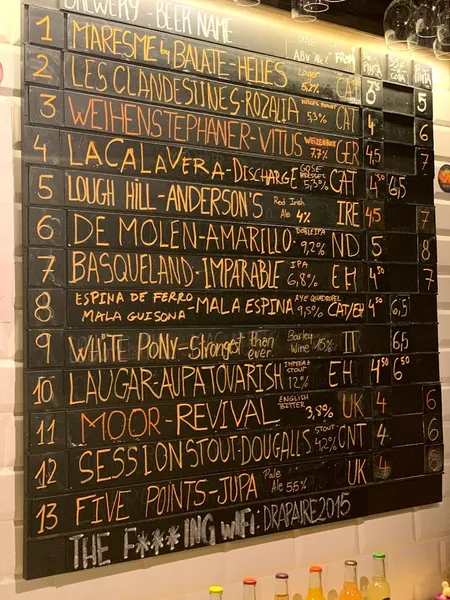 BREWERY - BEER NAME ABV "ALC" FROM PINTA COPA PINTA
1 MARESME by BALATE - HELLES Lager 5,2% CAT 5
2 LES CLANDESTINES - ROZALIA 5,3% CAT 4 6
3 WEIHENSTEPHANER - VITUS WEIZENBOCK 7,7% GER 4,5 7
4 LA CALAVERA - DISCHARGE GOSE 5,3% CAT 4,50 6,5
5 LOUGH HILL - ANDERSON'S Red Irish Ale 4% IRE 4,5 7
6 DE MOLEN - AMARILLO DOBLE IPA 9,2% ND 5 8
7 BASQUELAND - IMPARABLE IPA 6,8% EH 4,50 7
8 ESPINA DE FERRO MALA GUISONA - MALA ESPINA RYE QUADRUPEL 9,5% CAT/EH 4,50 6,5
9 WHITE PONY - Strongest then ever Barley Wine 15% IT 6,5
10 LAUGAR - AUPA TOVARISH IMPERIAL STOUT 12% EH 4,50 6,50
11 MOOR - REVIVAL ENGLISH BITTER 3,8% UK 4 6
12 SESSION STOUT - DOUGALLS STOUT 4,2% CNT 4 6
13 FIVE POINTS - JUPA Pale Ale 5,5% UK 4 6
THE F***ING WIFI: DRAPAIRE2015